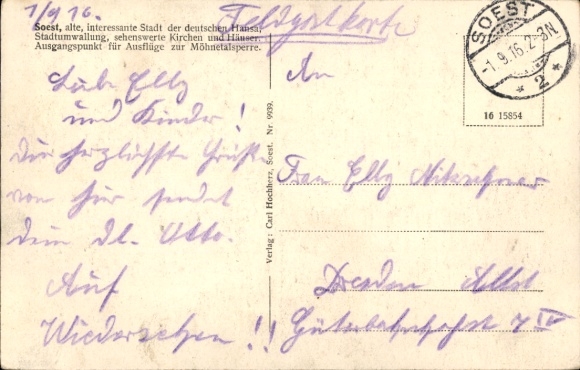 1/9 16.
Feldpostkarte
Soest, alte, interessante Stadt der deutschen Hansa,
Stadtumwallung, sehenswerte Kirchen und Häuser.
Ausgangspunkt für Ausflüge zur Möhnetalsperre.
SOEST
-1.9.16.2-3N
* 2 *
16 15854
Liebe Elly
und Kinder!
Die herzlichsten Grüße
von hier sendet
dein Otto.
Auf
Wiedersehen!!
Verlag: Carl Hochherz, Soest. Nr. 9939.
An
Frau Elly
Dresden Altst
Güterbahnhofst 7 IV